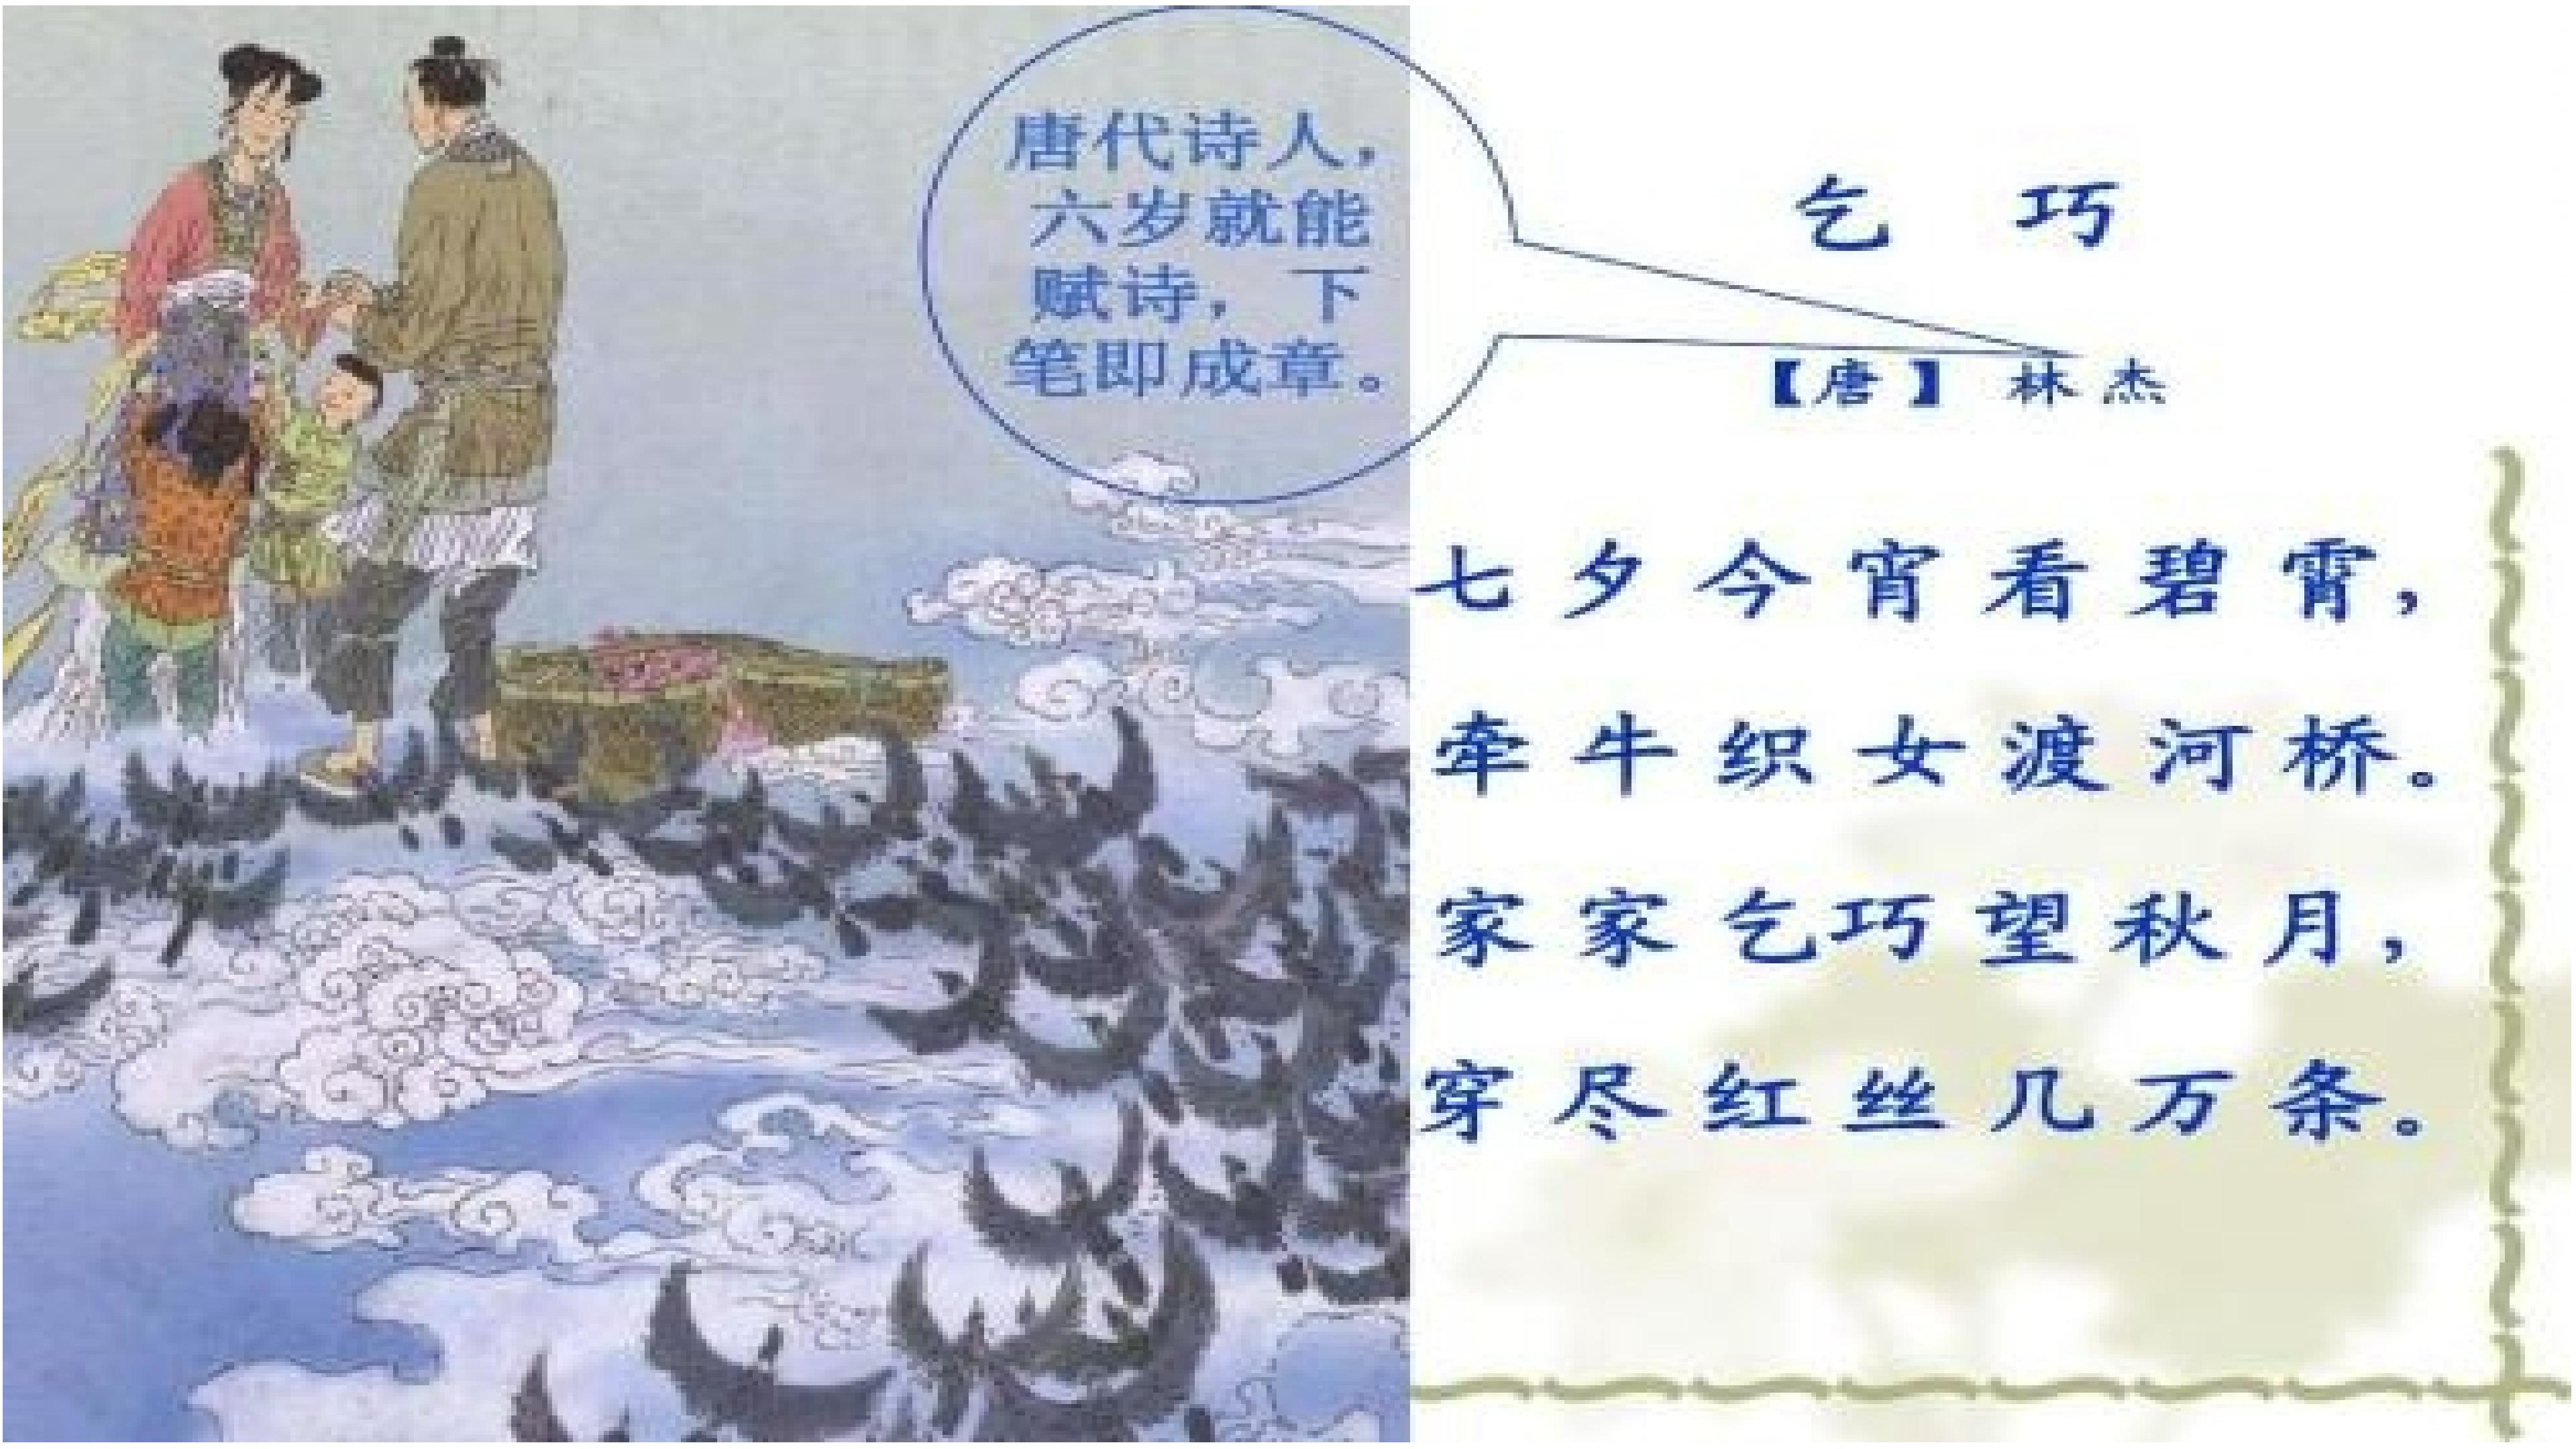 唐代诗人，
六岁就能
赋诗，下
笔即成章。
乞 巧
【唐】林杰
七夕今宵看碧霄，
牵牛织女渡河桥。
家家乞巧望秋月，
穿尽红丝几万条。